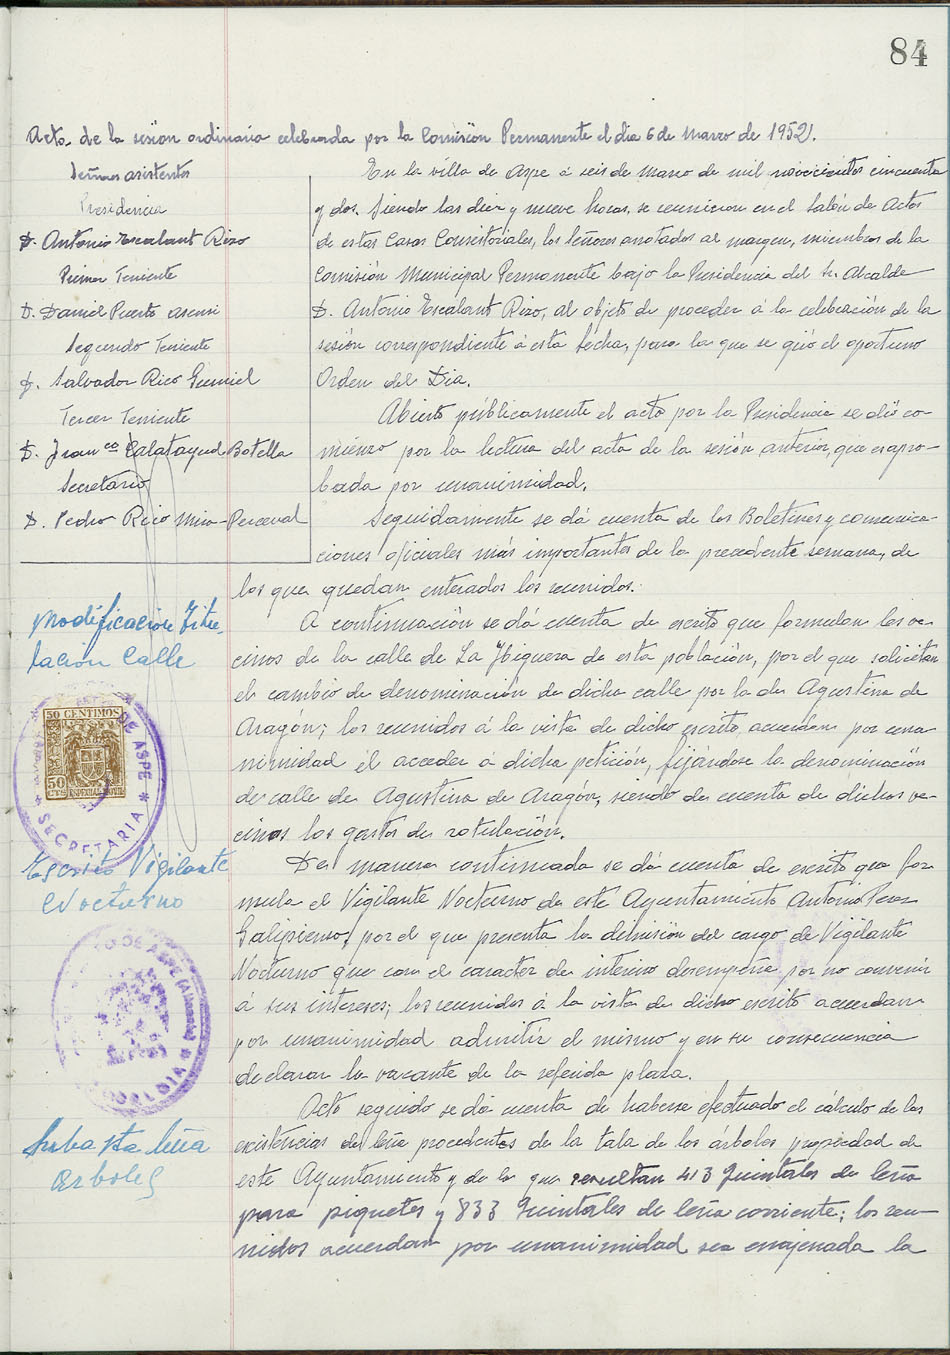 84
Acta de la sesión ordinaria celebrada por la Comisión Permanente el día 6 de Marzo de 1952.
Señores asistentes
Presidencia
D. Antonio Escalant Rizo
Primer Teniente
D. Daniel Puerto Asensi
Segundo Teniente
D. Salvador Rico Gumiel
Tercer Teniente
D. Franco Calatayud Botella
Secretario
D. Pedro Rico Mira-Perceval
En la villa de Aspe á seis de marzo de mil novecientos cincuenta
y dos. Siendo las diez y nueve horas, se reunieron en el Salón de Actos
de estas Casas Consistoriales, los Señores anotados al margen, miembros de la
Comisión Municipal Permanente bajo la Presidencia del Sr. Alcalde
D. Antonio Escalant Rizo, al objeto de proceder á la celebración de la
sesión correspondiente á esta fecha, para la que se giró el oportuno
Orden del Dia.
Abierto públicamente el acto por la Presidencia se dió co-
mienzo por la lectura del acta de la sesión anterior, que es apro-
bada por unanimidad.
Seguidamente se dá cuenta de los Boletines y comunica-
ciones oficiales más importantes de la precedente semana, de
los que quedan enterados los reunidos.
Modificación Titu-
lación Calle
A continuación se dá cuenta de escrito que formulan los ve-
cinos de la calle de La Higuera de esta población, por el que solicitan
el cambio de denominación de dicha calle por la de Agustina de
Aragón; los reunidos á la vista de dicho escrito, acuerdan por una-
nimidad él acceder á dicha petición, fijándose la denominación
de calle de Agustina de Aragón, siendo de cuenta de dichos ve-
cinos los gastos de rotulación.
50 CENTIMOS
50
CTS ESPECIAL MOVIL
DE ASPE * SECRETARIA *
Escrito Vigilante
Nocturno
De manera continuada se dá cuenta de escrito que for-
mula el Vigilante Nocturno de este Ayuntamiento Antonio Perez
Galipienso, por el que presenta la dimisión del cargo de Vigilante
Nocturno que con el caracter de interino desempeña por no convenir
á sus intereses; los reunidos á la vista de dicho escrito acuerdan
por unanimidad admitir el mismo y en su consecuencia
declarar la vacante de la referida plaza.
O DE ASPE (Alicante) * ALCALDIA
Subasta leña
Arboles
Acto seguido se dá cuenta de haberse efectuado el cálculo de las
existencias de leña procedentes de la tala de los árboles propiedad de
este Ayuntamiento y de la que resultan 413 Quintales de leña
para piquetes y 833 Quintales de leña corriente; los reu-
nidos acuerdan por unanimidad sea enajenada la